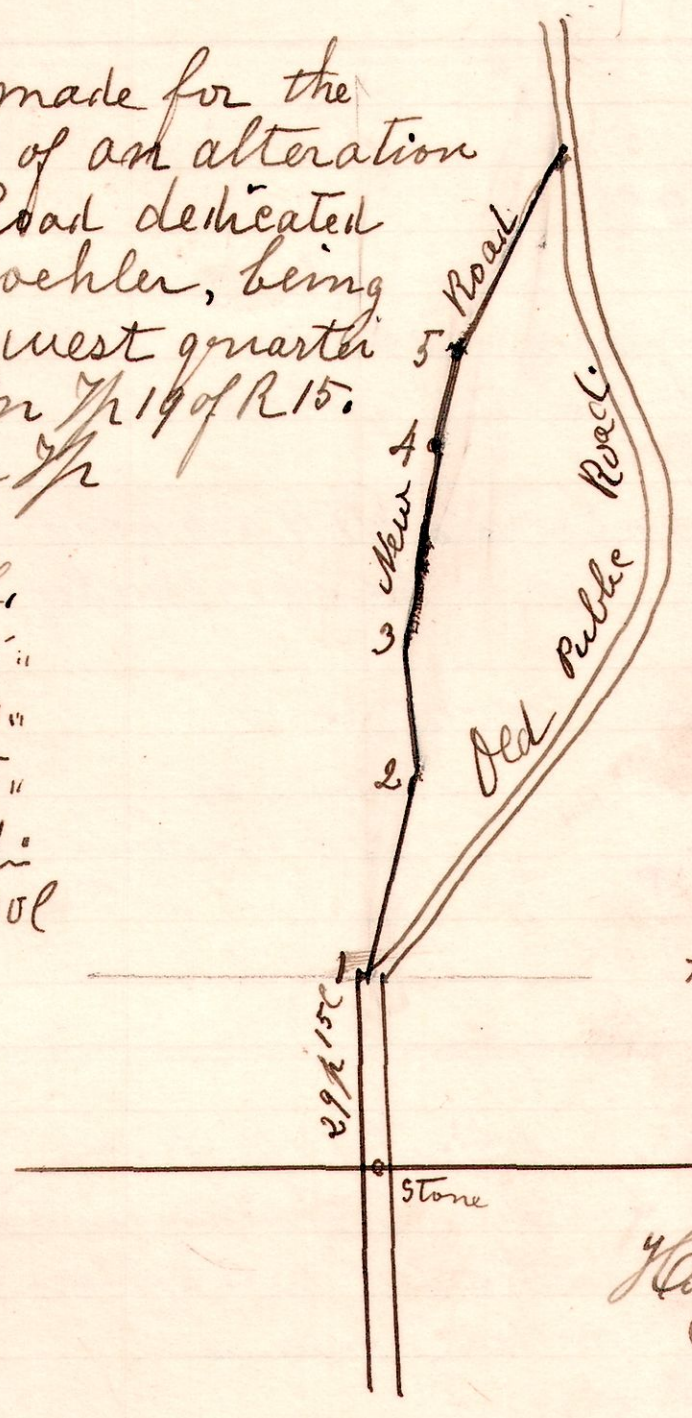 made for the
of an alteration
Road dedicated
oehler, being
west quarter
n Tp 19 of R 15.
Tp
ol
Road
5
4
New
3
2
1
Old Public Road.
29p 15l
Stone